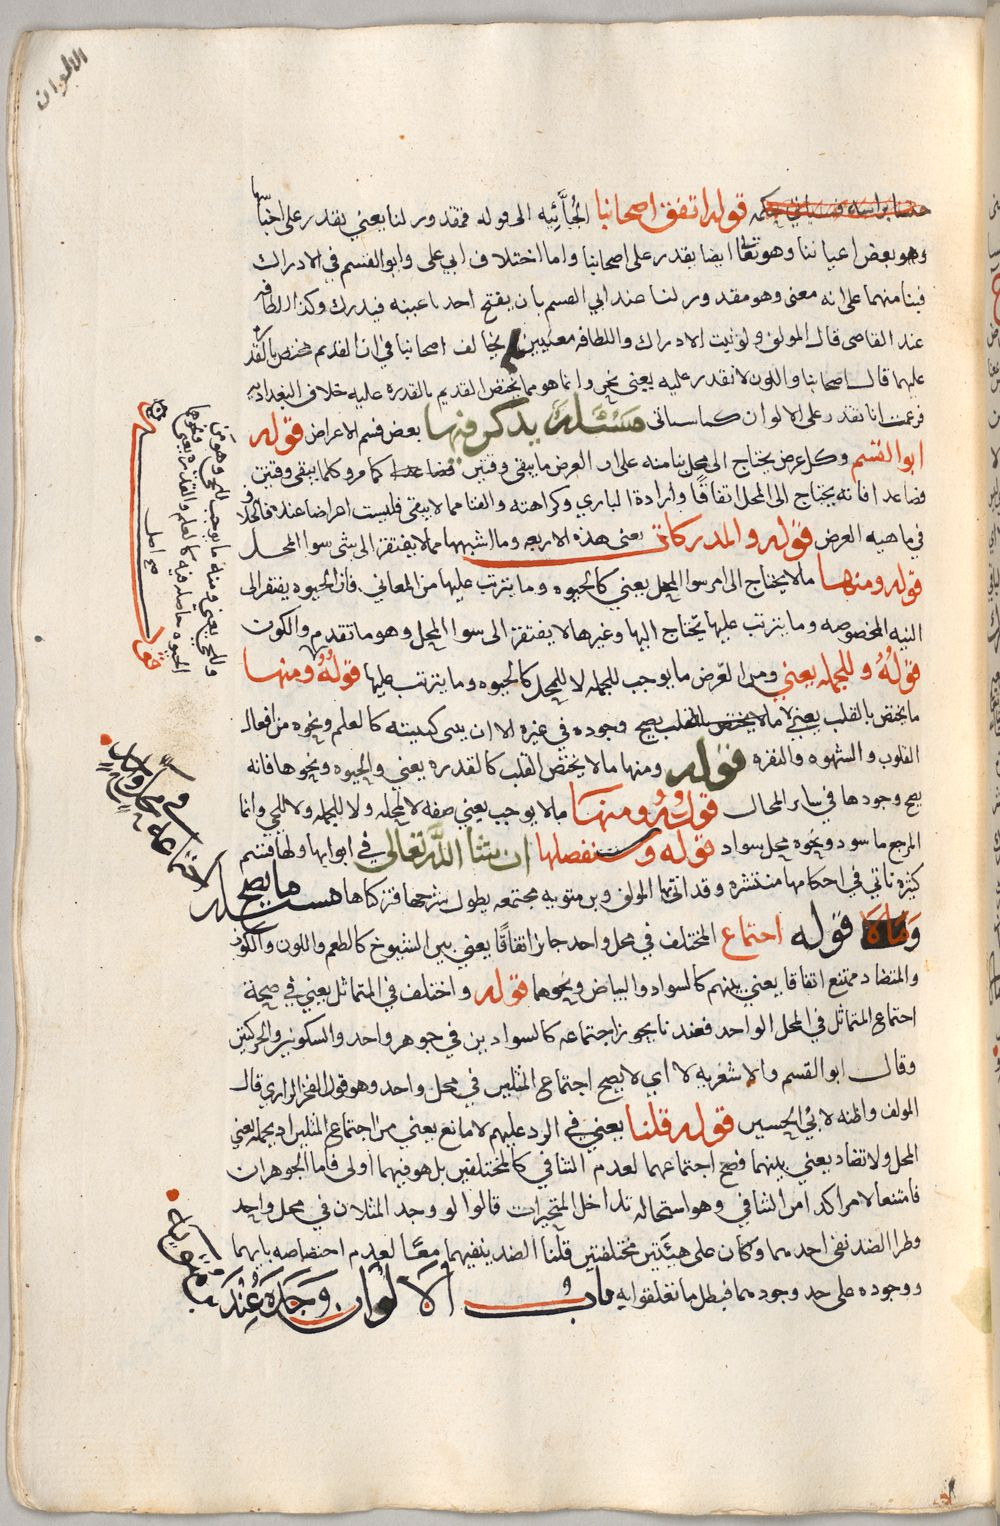 الالوان
قوله اتفق اصحابنا الجبَّائِيه الى قوله فمقدور لنا يعني يقدر على اجناسها
وهو بعض اعياننا وهو تعالى ايضا يقدر على اصحابنا واما اختلاف ابي على وابو القسم في الادراك
فبنا منهما على انه معنى وهو مقدور لنا عند ابي القسم بان يفتح احدنا عينه فيدرك وكذا اللطافه
عند القاضي قال المولف ولو ثبت الادراك واللطافه معنيين يخالف اصحابنا في ان القديم مختص بالقدره
عليهما قال اصحابنا واللون لا نقدر عليه يعني نحن وانما هو مما يختص القديم بالقدره عليه خلاف البغداديه
فزعمت انا نقدر على الالوان كما سياتى مَسْئَلَه يذكر فيها بعض قسم الاعراض قوله
ابو القسم وكل عرض يحتاج الى محل بنا منه على ان العرض ما يبقى وقتين فصاعدا كما مر وكلما يبقى وقتين
فصاعدا فانه يحتاج الى المحل اتفاقًا وارادة الباري وكراهته والفنا مما لا يبقى فليست اعراضا عنده فالخلاف
في ماهيه العرض قوله والمدركات يعنى هذه الاربعه وما اشبهها مما لا يفتقر الى شى سوا المحل
قوله ومنها ما لا يحتاج الى امر سوا المحل يعني كالحيوه وما يترتب عليها من المعاني فان الحيوه يفتقر الى
البنيه المخصوصه وما يترتب عليها يحتاج اليها وغيرها لا يفتقر الى سوا المحل وهو ما تقدم والكون
قولُهُ وللجمله يعني ومن العرض ما يوجب للجمله لا للمحل كالحيوه وما يترتب عليها قولُهُ ومنها
ما يختص بالقلب يعني لا يصح وجوده في غيره الا ان يبنى كبنيته كالعلم ونحوه من افعال
القلوب والشهوه والنفره قوله ومنها ما لا يختص القلب كالقدره يعني والحيوه ونحوها فانه
يصح وجودها في سائر المحال قولُهُ ومنها ما لا يوجب يعني صفه لا لمحله ولا للجمله ولا للحي وانما
المرجع ما سود ونحوه محل سواد قوله وسنفصلها ان شا اللَّه تعالى في ابوابها ولها قسم
كثيره تاتي في احكامها منتشره وقد اتى بها المولف وبن متويه مجتمعه يطول شرحها فتركناها مسئله ما يصح
اجتماعه في محل واحد
وما لا قوله اجتماع المختلف في محل واحد جائز اتفاقًا يعني بين الشيوخ كالطعم واللون والكون
والمتضاد ممتنع اتفاقا يعني بينهم كالسواد والبياض ونحوها قوله واختلف في المتماثل يعني في صحة
اجتماع المتماثل في المحل الواحد فعندنا يجوز اجتماعه كالسوادين في جوهر واحد والسكونين والحركتين
وقال ابو القسم والاشعريه لا اي لا يصح اجتماع المثلين في محل واحد وهو قول الفخر الرازي قال
المولف واظنه لابي الحسين قوله قلنا يعني في الرد عليهم لا مانع يعني من اجتماع المثلين اذ يحمله يعني
المحل ولا تضاد يعني بينهما فصح اجتماعهما لعدم التنافي كالمختلفين بل هو فيهما اولى فاما الجوهران
فامتنعا لامر اكد امر التنافي وهو استحاله تداخل المتحيزات قالوا لو وجد المثلان في محل واحد
وطرا الضد نفى احدهما وكان على هيئتين مختلفتين قلنا الضد ينفيهما معًا لعدم اختصاصه بايهما
ووجوده على حد وجودهما فبطل ما تعلقوا به باب الالوان